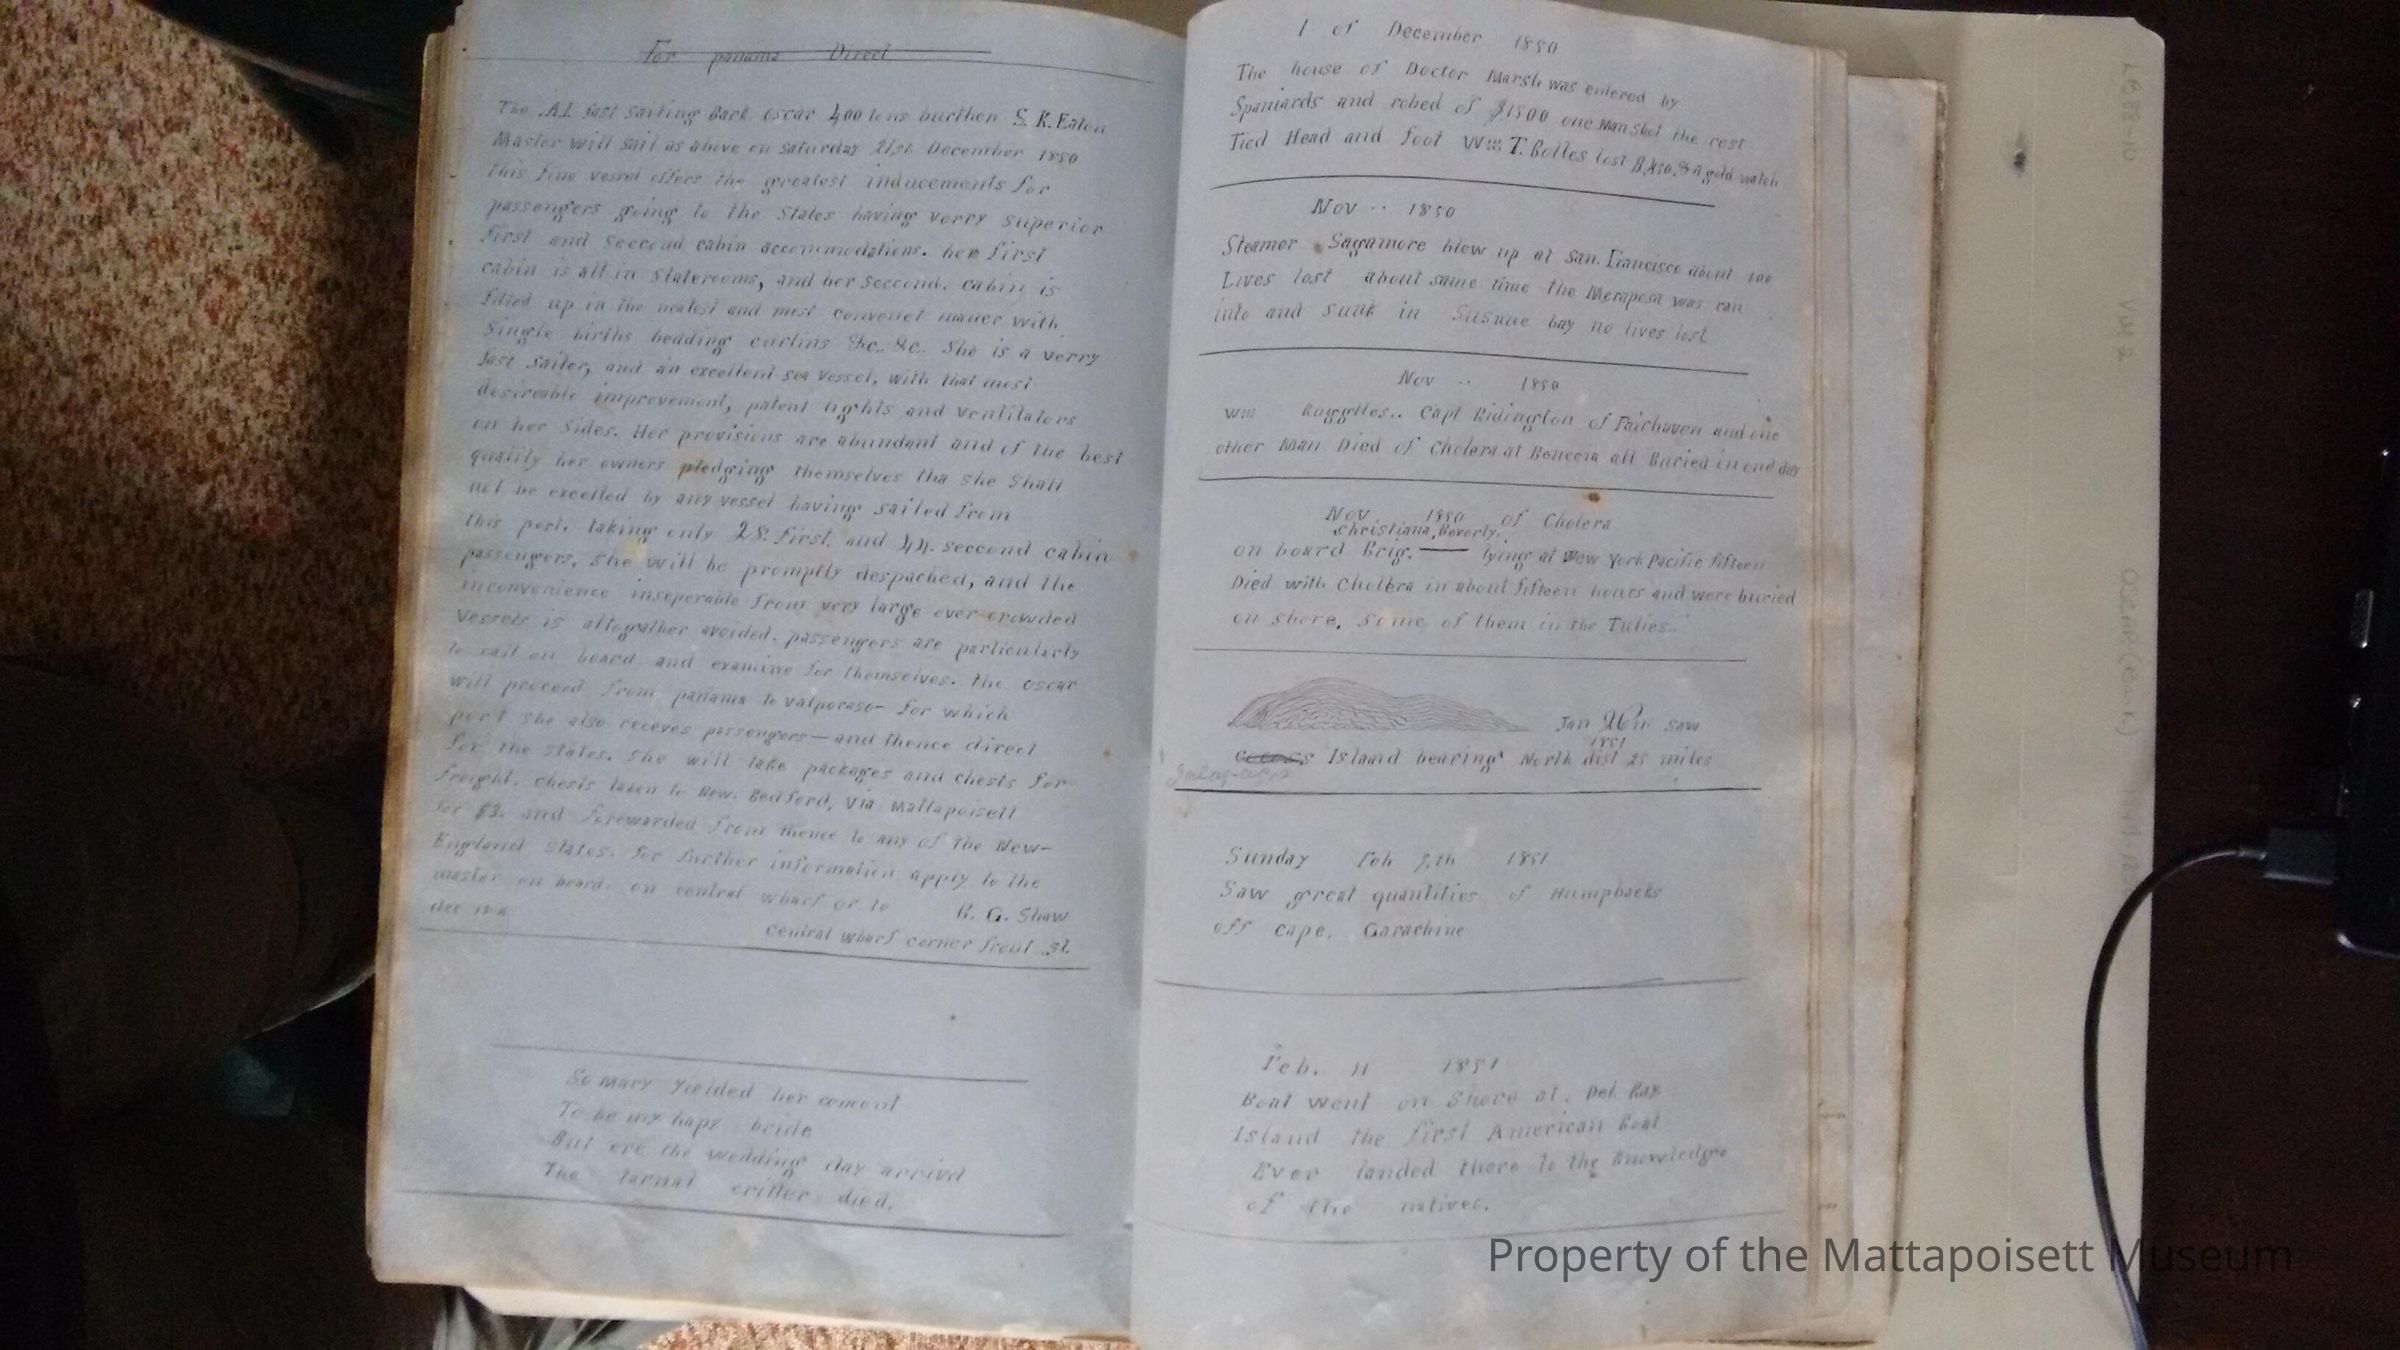 For panama Direct
The .A.1. fast sailing Bark oscar 400 tons burthen S. K. Eaton
Master will sail as above on saturday 21st December 1850
this fine vessel offers the greatest inducements for
passengers going to the States having verry superior
first and seccond cabin accommodations. her first
cabin is all in staterooms, and her seccond. cabin is
fitted up in the neatest and most convenet maner with
Single births beading curtins &c. &c. She is a verry
fast sailer, and an excellent sea vessel, with that most
desireable improvement, patent lights and ventilators
on her sides. Her provisions are abundant and of the best
quality her owners pledging themselves tha she shall
not be excelled by any vessel having sailed from
this port. taking only 28. first. and 44. seccond cabin
passengers, she will be promptly despached, and the
inconvenience inseperable from very large over crowded
vessels is altogather avoided. passengers are particularly
to call on board and examine for themselves. the oscar
will proceed from panama to valporaso- for which
port she also receves passengers — and thence direct
for the states. she will take packages and chests for
freight. chests taken to New. Bedford, via Mattapoisett
for $3. and forewarded from thence to any of the New-
England states. for further information apply to the
master on board. on central wharf or to B. G. Shaw
dec central wharf corner front st.
So Mary yielded her concent
To be my hapy bride
But ere the wedding day arrivd
The tarnal critter died.
1 of December 1850
The house of Doctor Marsh was entered by
Spaniards and robed of $1500 one Man shot the rest
Tied Head and foot Wm T. Bolles lost gold watch
Nov .. 1850
Steamer Sagamore blew up at San. Francisco about 100
Lives lost about same time the Meraposa was ran
into and sunk in Susune bay no lives lost
Nov .. 1850
wm Ruggles.. Capt Ridington of Fairhaven and one
other Man Died of Cholera at Benecia all Buried in one day
Nov 1850 of Cholera
Christiana, Beverly.
on board Brig. — lying at New York Pacific fifteen
Died with Cholera in about fifteen hours and were buried
on shore, some of them in the Tulies.
Jan 26th saw
1851
cocoas Island bearing North dist 25 miles
Sunday Feb 1851
Saw great quantities of Humpbacks
off cape. Garachine
Feb. 11 1851
Boat went on shore at. Del Ray
Island the first American Boat
Ever landed there to the knowledge
of the natives.
Property of the Mattapoisett Museum